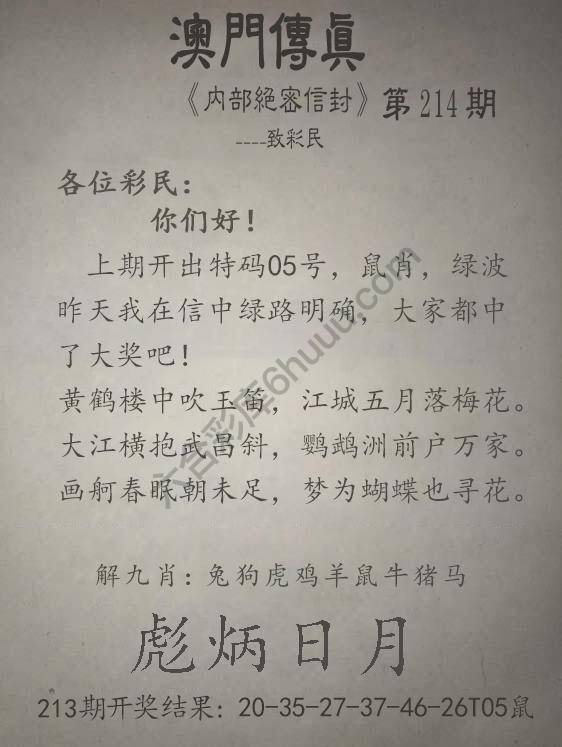 澳門傳真
《内部絕密信封》第214期
----致彩民
各位彩民：
你们好！
上期开出特码05号，鼠肖，绿波
昨天我在信中绿路明确，大家都中
了大奖吧！
黄鹤楼中吹玉笛，江城五月落梅花。
大江横抱武昌斜，鹦鹉洲前户万家。
画舸春眠朝未足，梦为蝴蝶也寻花。
解九肖：兔狗虎鸡羊鼠牛猪马
彪炳日月
213期开奖结果：20-35-27-37-46-26T05鼠
六合彩库6huuu.com